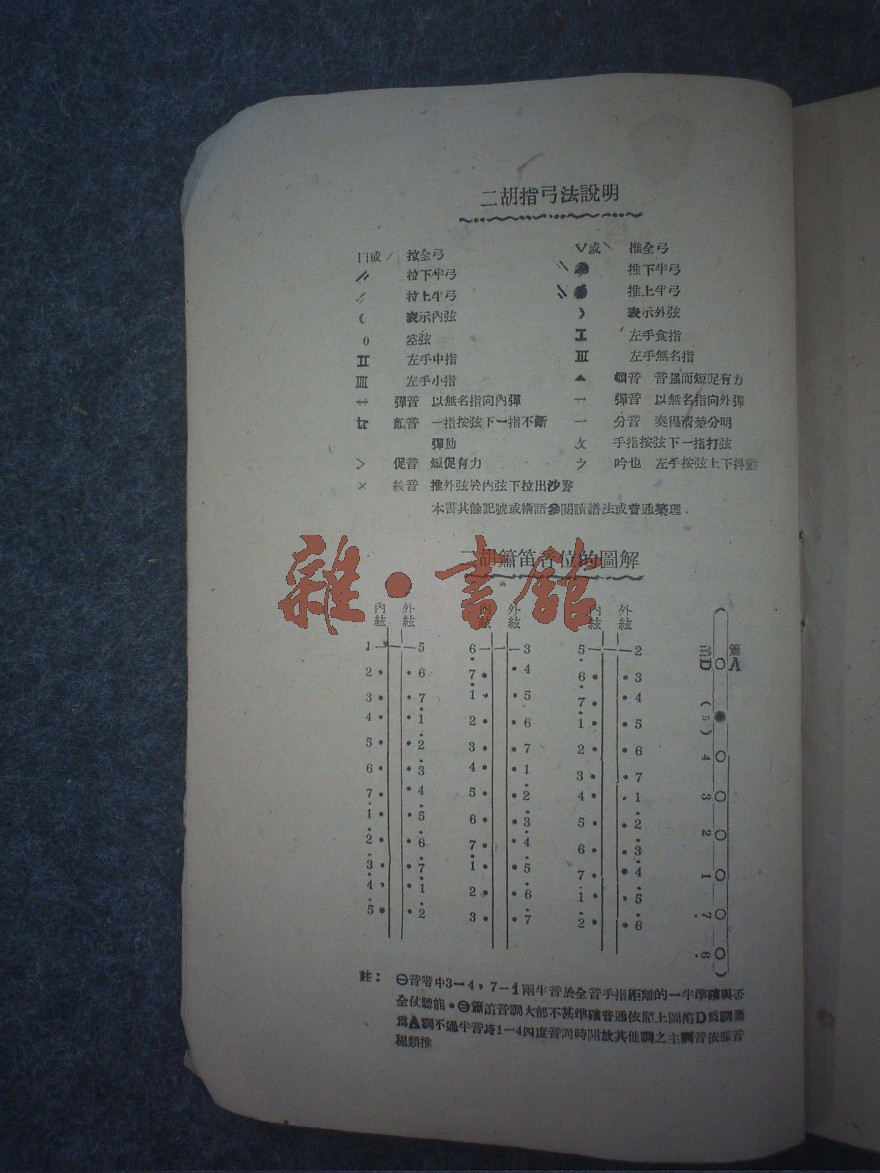 二胡指弓法說明
∏或／ 拉全弓 ∨或＼ 推全弓
拉下半弓 推下半弓
拉上半弓 推上半弓
( 表示內弦 ) 表示外弦
0 空弦 I 左手食指
II 左手中指 III 左手無名指
IIII 左手小指 ▲ 頓音 音強而短促有力
彈音 以無名指向內彈 彈音 以無名指向外彈
一指按弦下一指不斷 一 分音 奏得清楚分明
彈動 手指按弦下一指打弦
> 促音 短促有力 吟也 左手按弦上下抖動
× 推外弦於內弦下拉出沙聲
本書其餘記號或術語參閱讀譜法或普通樂理．
二胡簫笛各位的圖解
雜·書館
內絃 外絃 內絃 外絃 內絃 外絃
1 5 6 3 5 2
2 6 7 4 6 3
3 7 1 5 7 4
4 1 2 6 1 5
5 2 3 7 2 6
6 3 4 1 3 7
7 4 5 2 4 1
1 5 6 3 5 2
2 6 7 4 6 3
3 7 1 5 7 4
4 1 2 6 1 5
5 2 3 7 2 6
簫A
笛D
(5) 4 3 2 1 7 6
註： ㊀音階中3－4，7－1兩半音於全音手指距離的一半準確與否
全仗聽能。㊁簫笛音調大部不甚準確普通依照上圖笛D為調簫
為A調不過半音時1－4四度音同時開放其他調之主調音依據音
程類推